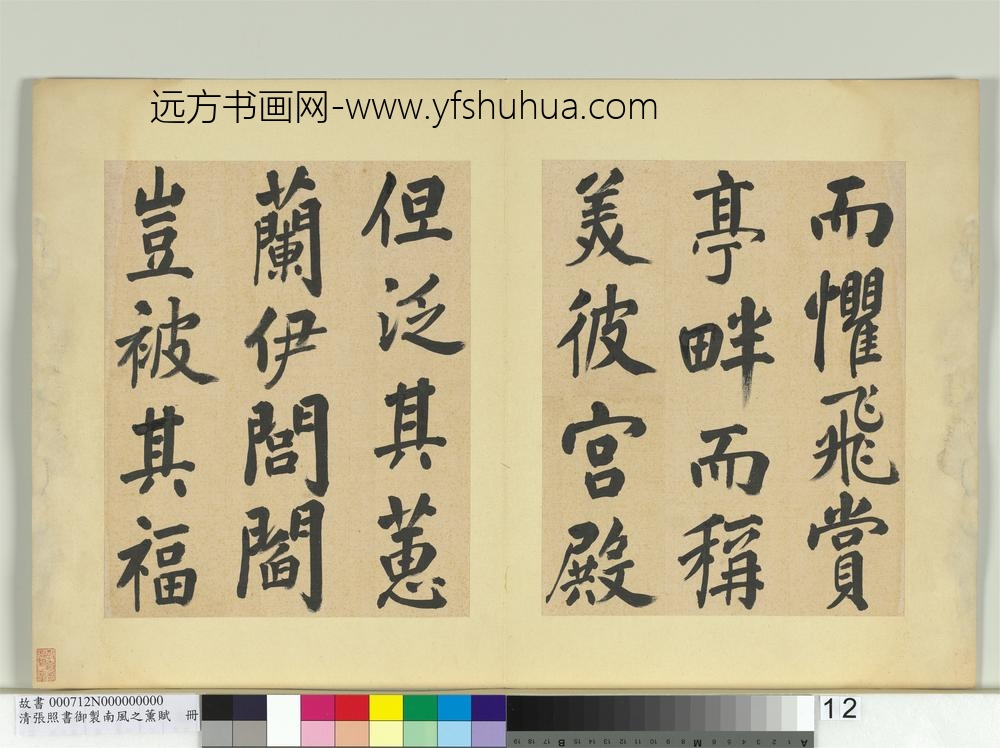 远方书画网-www.yfshuhua.com
而懼飛賞
亭畔而稱
美彼宮殿
但泛其蕙
蘭伊閭閻
豈被其福
故書 000712N000000000
清張照書御製南風之薰賦 冊
12